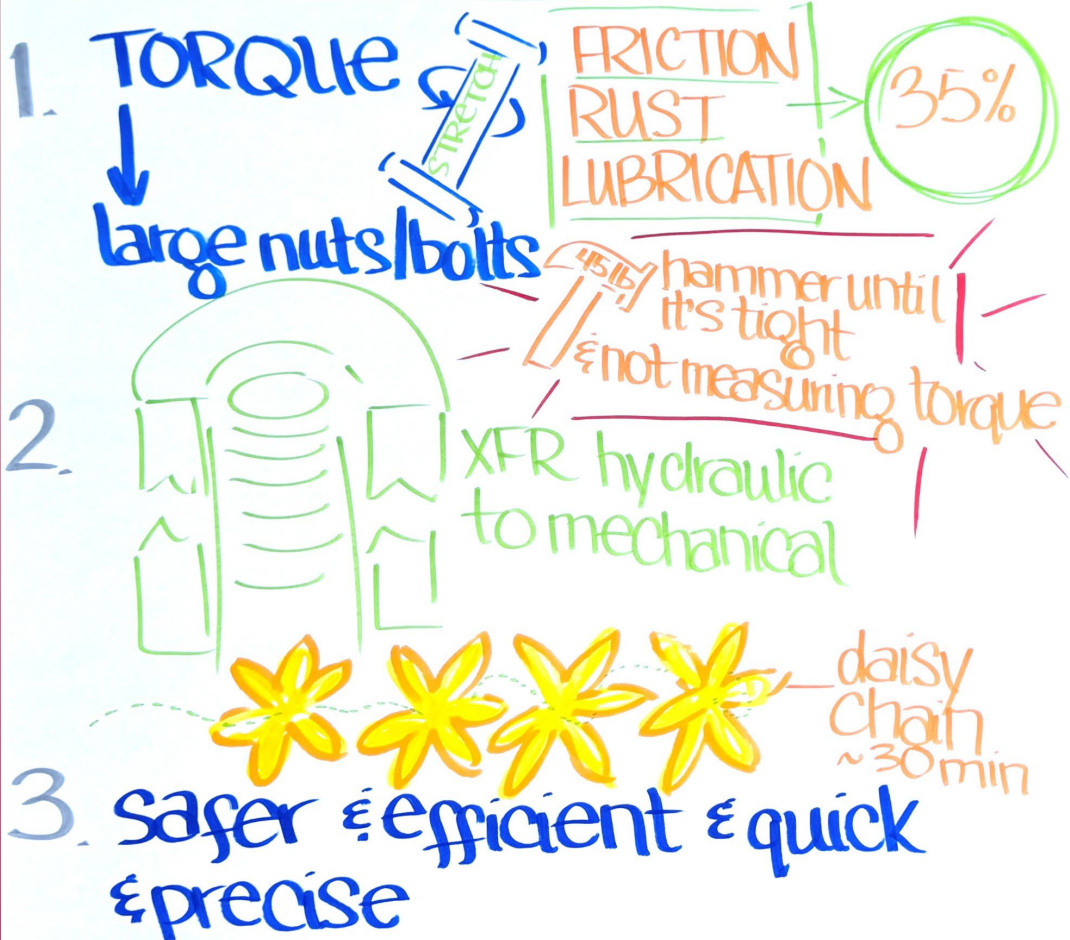 1. TORQUE
STRETCH
FRICTION
RUST
LUBRICATION
35%
large nuts/bolts
45 lb
hammer until
it's tight
& not measuring torque
2.
XFR hydraulic
to mechanical
daisy
chain
~30min
3. safer & efficient & quick
& precise